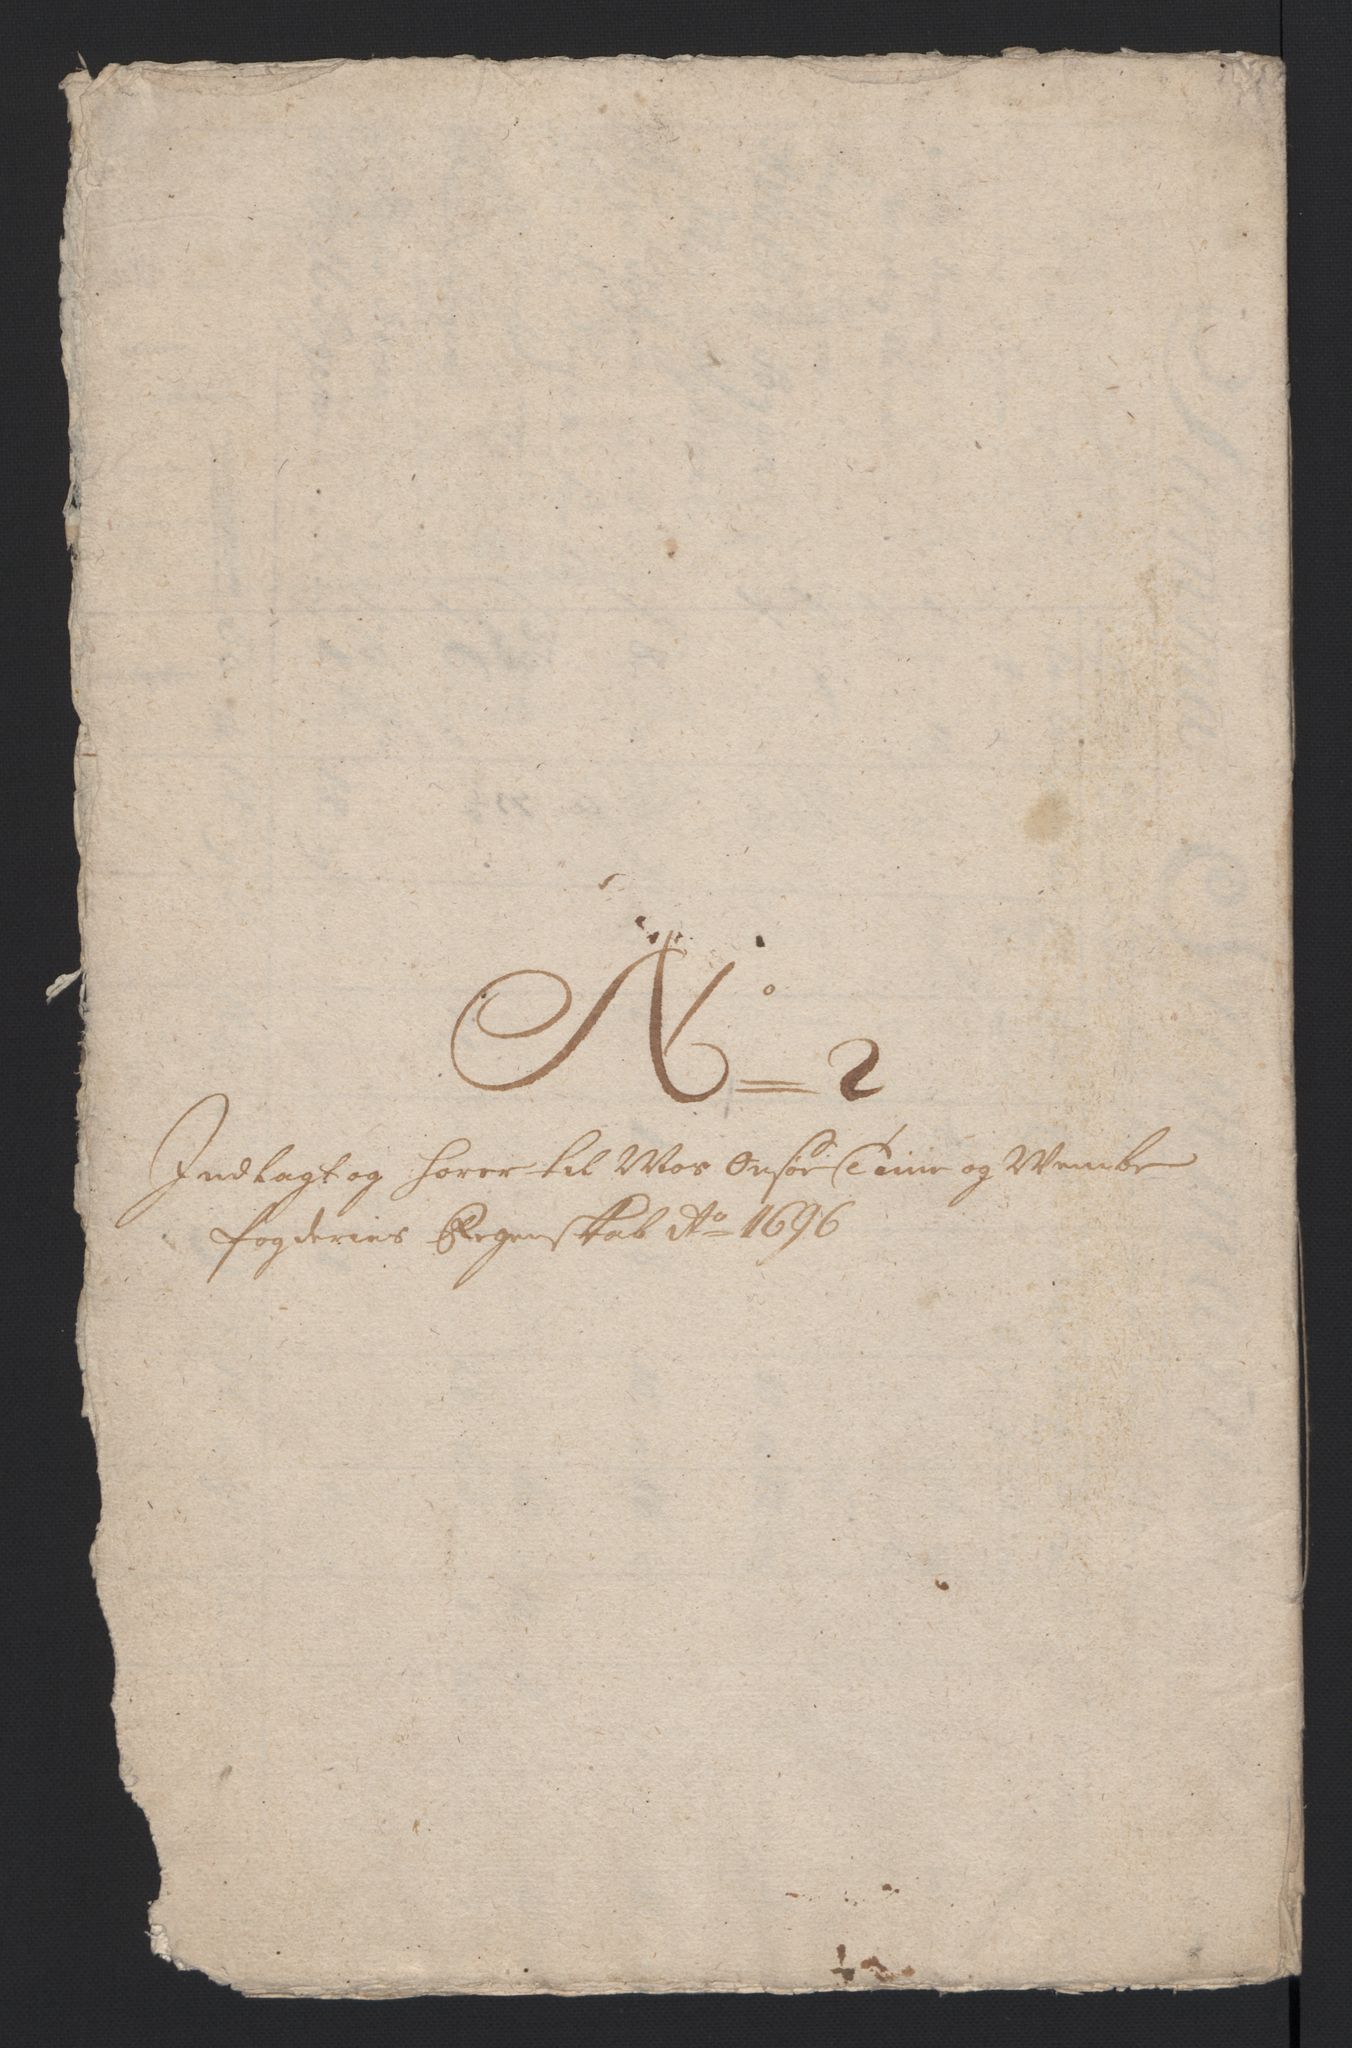 N:o 2
Indlagt og hører til Mos Onsøe Tune og Wembe
fogderies Regenskab Ao 1696